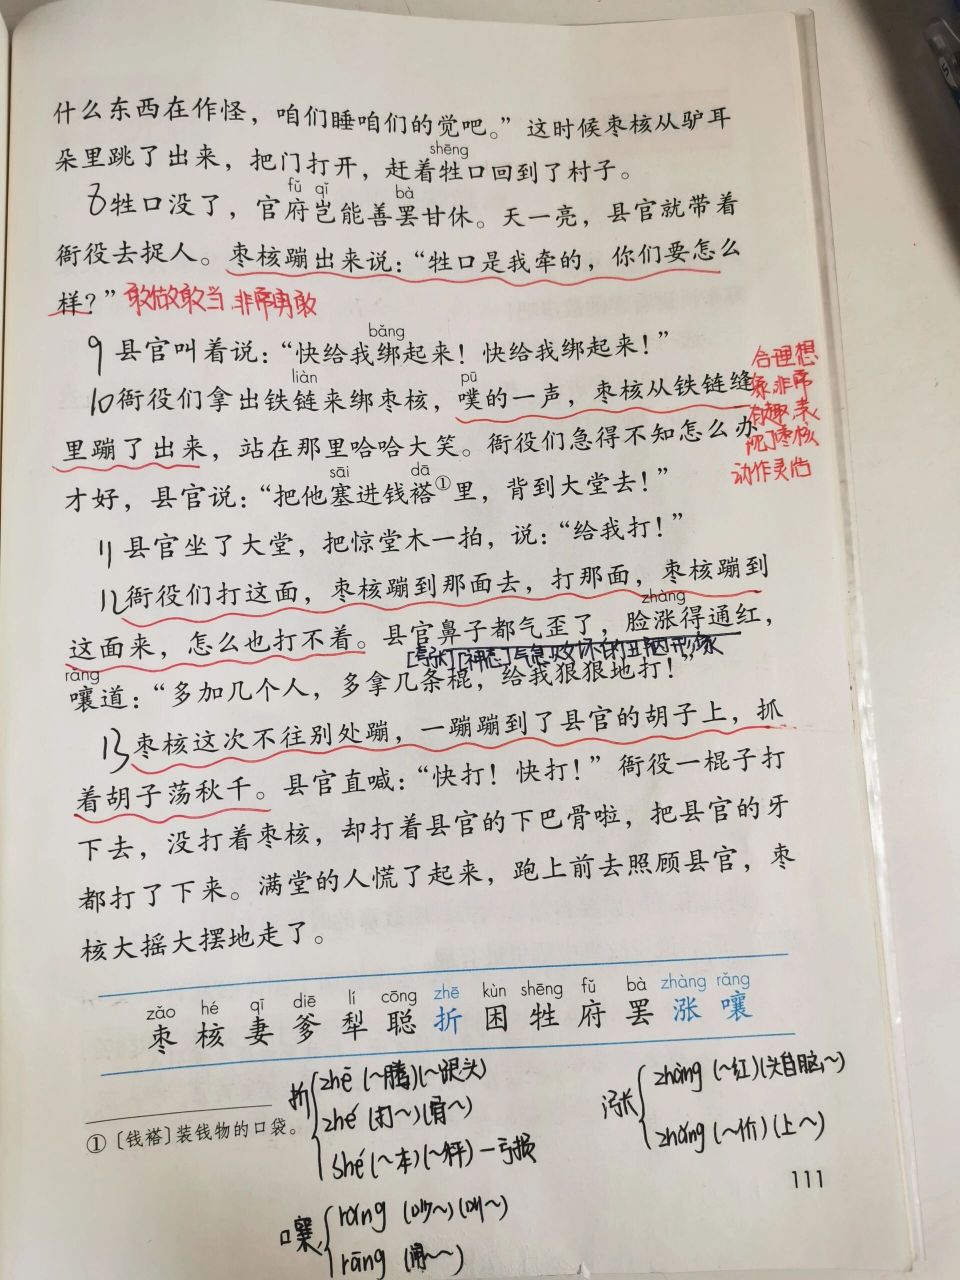 什么东西在作怪，咱们睡咱们的觉吧。”这时候枣核从驴耳
shēng
朵里跳了出来，把门打开，赶着牲口回到了村子。
fǔ qǐ bà
8牲口没了，官府岂能善罢甘休。天一亮，县官就带着
衙役去捉人。枣核蹦出来说：“牲口是我牵的，你们要怎么
样？”敢做敢当 非常勇敢
bǎng
9县官叫着说：“快给我绑起来！快给我绑起来！”
liàn pū
10衙役们拿出铁链来绑枣核，噗的一声，枣核从铁链缝
里蹦了出来，站在那里哈哈大笑。衙役们急得不知怎么办
sāi dā
才好，县官说：“把他塞进钱褡①里，背到大堂去！”
合理想
象非常
有趣，表
现了枣核
动作灵活
11县官坐了大堂，把惊堂木一拍，说：“给我打！”
12衙役们打这面，枣核蹦到那面去，打那面，枣核蹦到
zhàng
这面来，怎么也打不着。县官鼻子都气歪了，脸涨得通红，
[夸张][神态]气急败坏的丑陋形象
rǎng
嚷道：“多加几个人，多拿几条棍，给我狠狠地打！”
13枣核这次不往别处蹦，一蹦蹦到了县官的胡子上，抓
着胡子荡秋千。县官直喊：“快打！快打！”衙役一棍子打
下去，没打着枣核，却打着县官的下巴骨啦，把县官的牙
都打了下来。满堂的人慌了起来，跑上前去照顾县官，枣
核大摇大摆地走了。
zǎo hé qī diē lí cōng zhē kùn shēng fǔ bà zhàng rǎng
枣 核 妻 爹 犁 聪 折 困 牲 府 罢 涨 嚷
①〔钱褡〕装钱物的口袋。
折
zhē (～腾)(～跟头)
zhé (打～)(骨～)
shé (～本)(～秤)—亏损
涨
zhàng (～红)(头昏脑～)
zhǎng (～价)(上～)
嚷
rǎng (吵～)(叫～)
rāng
111